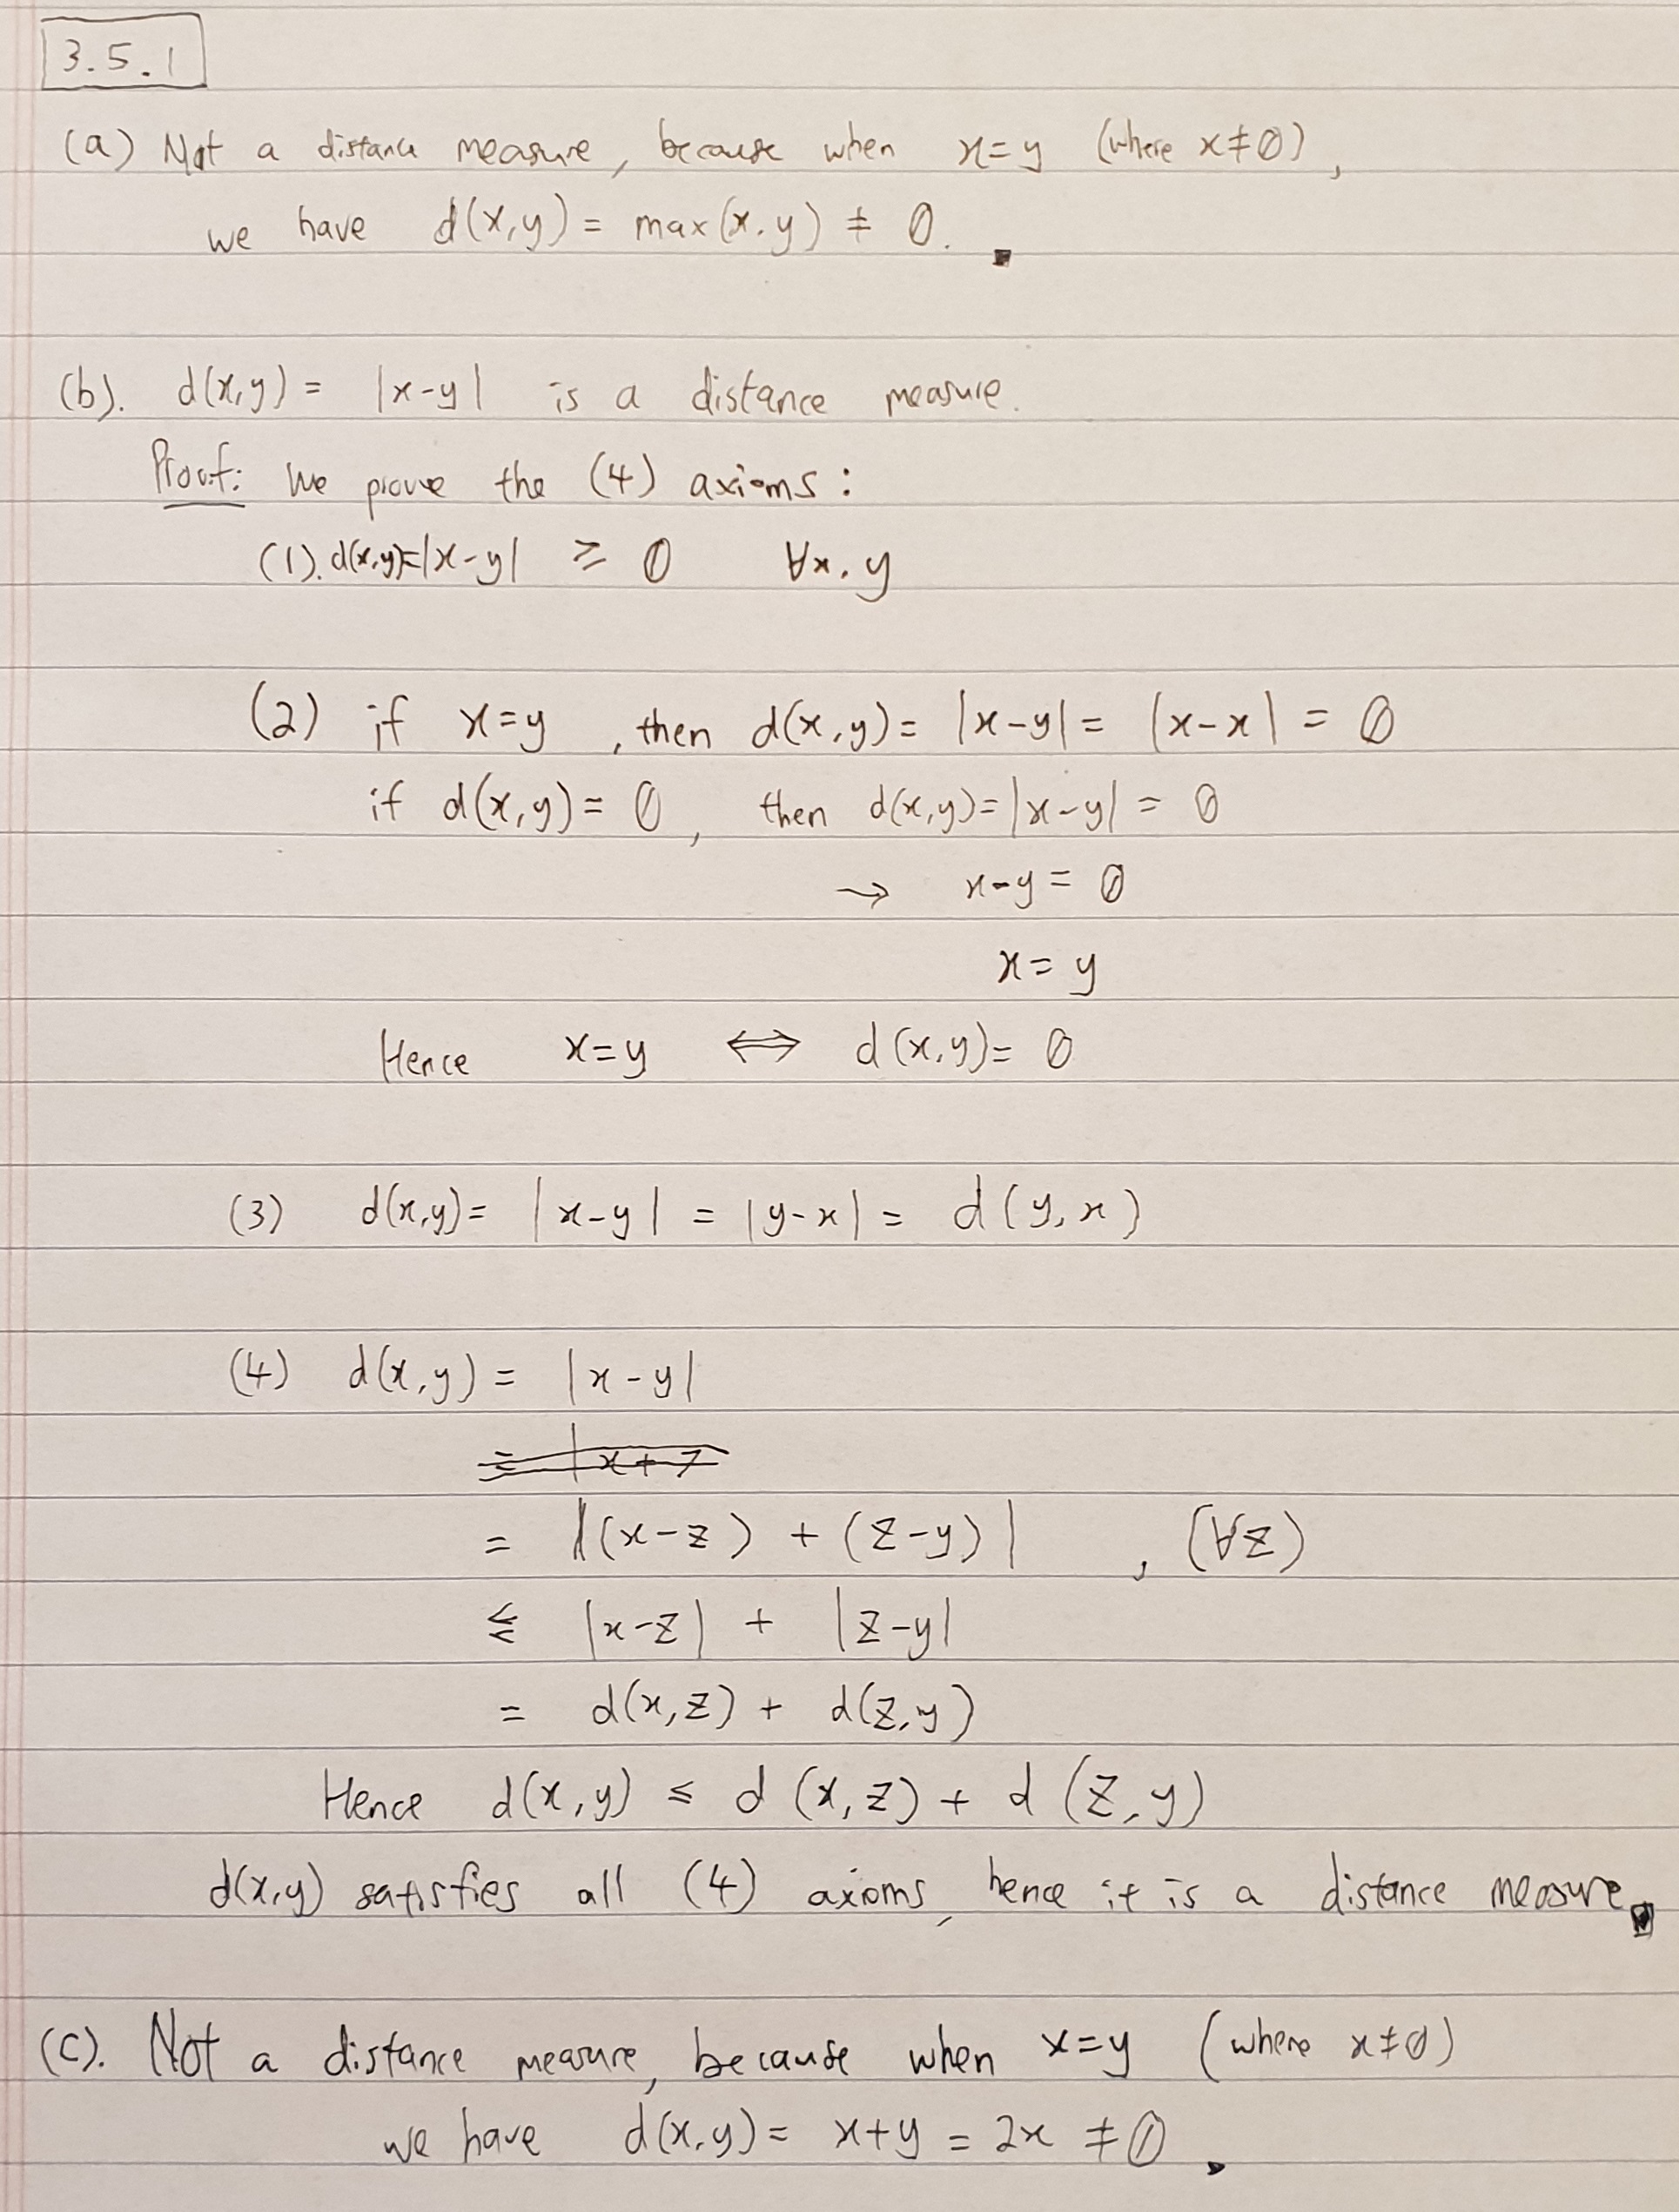 3.5.1
(a) Not a distance measure, because when x=y (where x≠0),
we have d(x,y) = max(x,y) ≠ 0.
(b). d(x,y) = |x-y| is a distance measure.
Proof: We prove the (4) axioms:
(1). d(x,y)=|x-y| ≥ 0 ∀x,y
(2) if x=y, then d(x,y) = |x-y| = |x-x| = 0
if d(x,y) = 0, then d(x,y)=|x-y| = 0
→ x-y = 0
x = y
Hence x=y ⟺ d(x,y) = 0
(3) d(x,y) = |x-y| = |y-x| = d(y,x)
(4) d(x,y) = |x-y|
= |(x-z) + (z-y)|, (∀z)
≤ |x-z| + |z-y|
= d(x,z) + d(z,y)
Hence d(x,y) ≤ d(x,z) + d(z,y)
d(x,y) satisfies all (4) axioms, hence it is a distance measure.
(c). Not a distance measure, because when x=y (where x≠0)
we have d(x,y) = x+y = 2x ≠ 0.